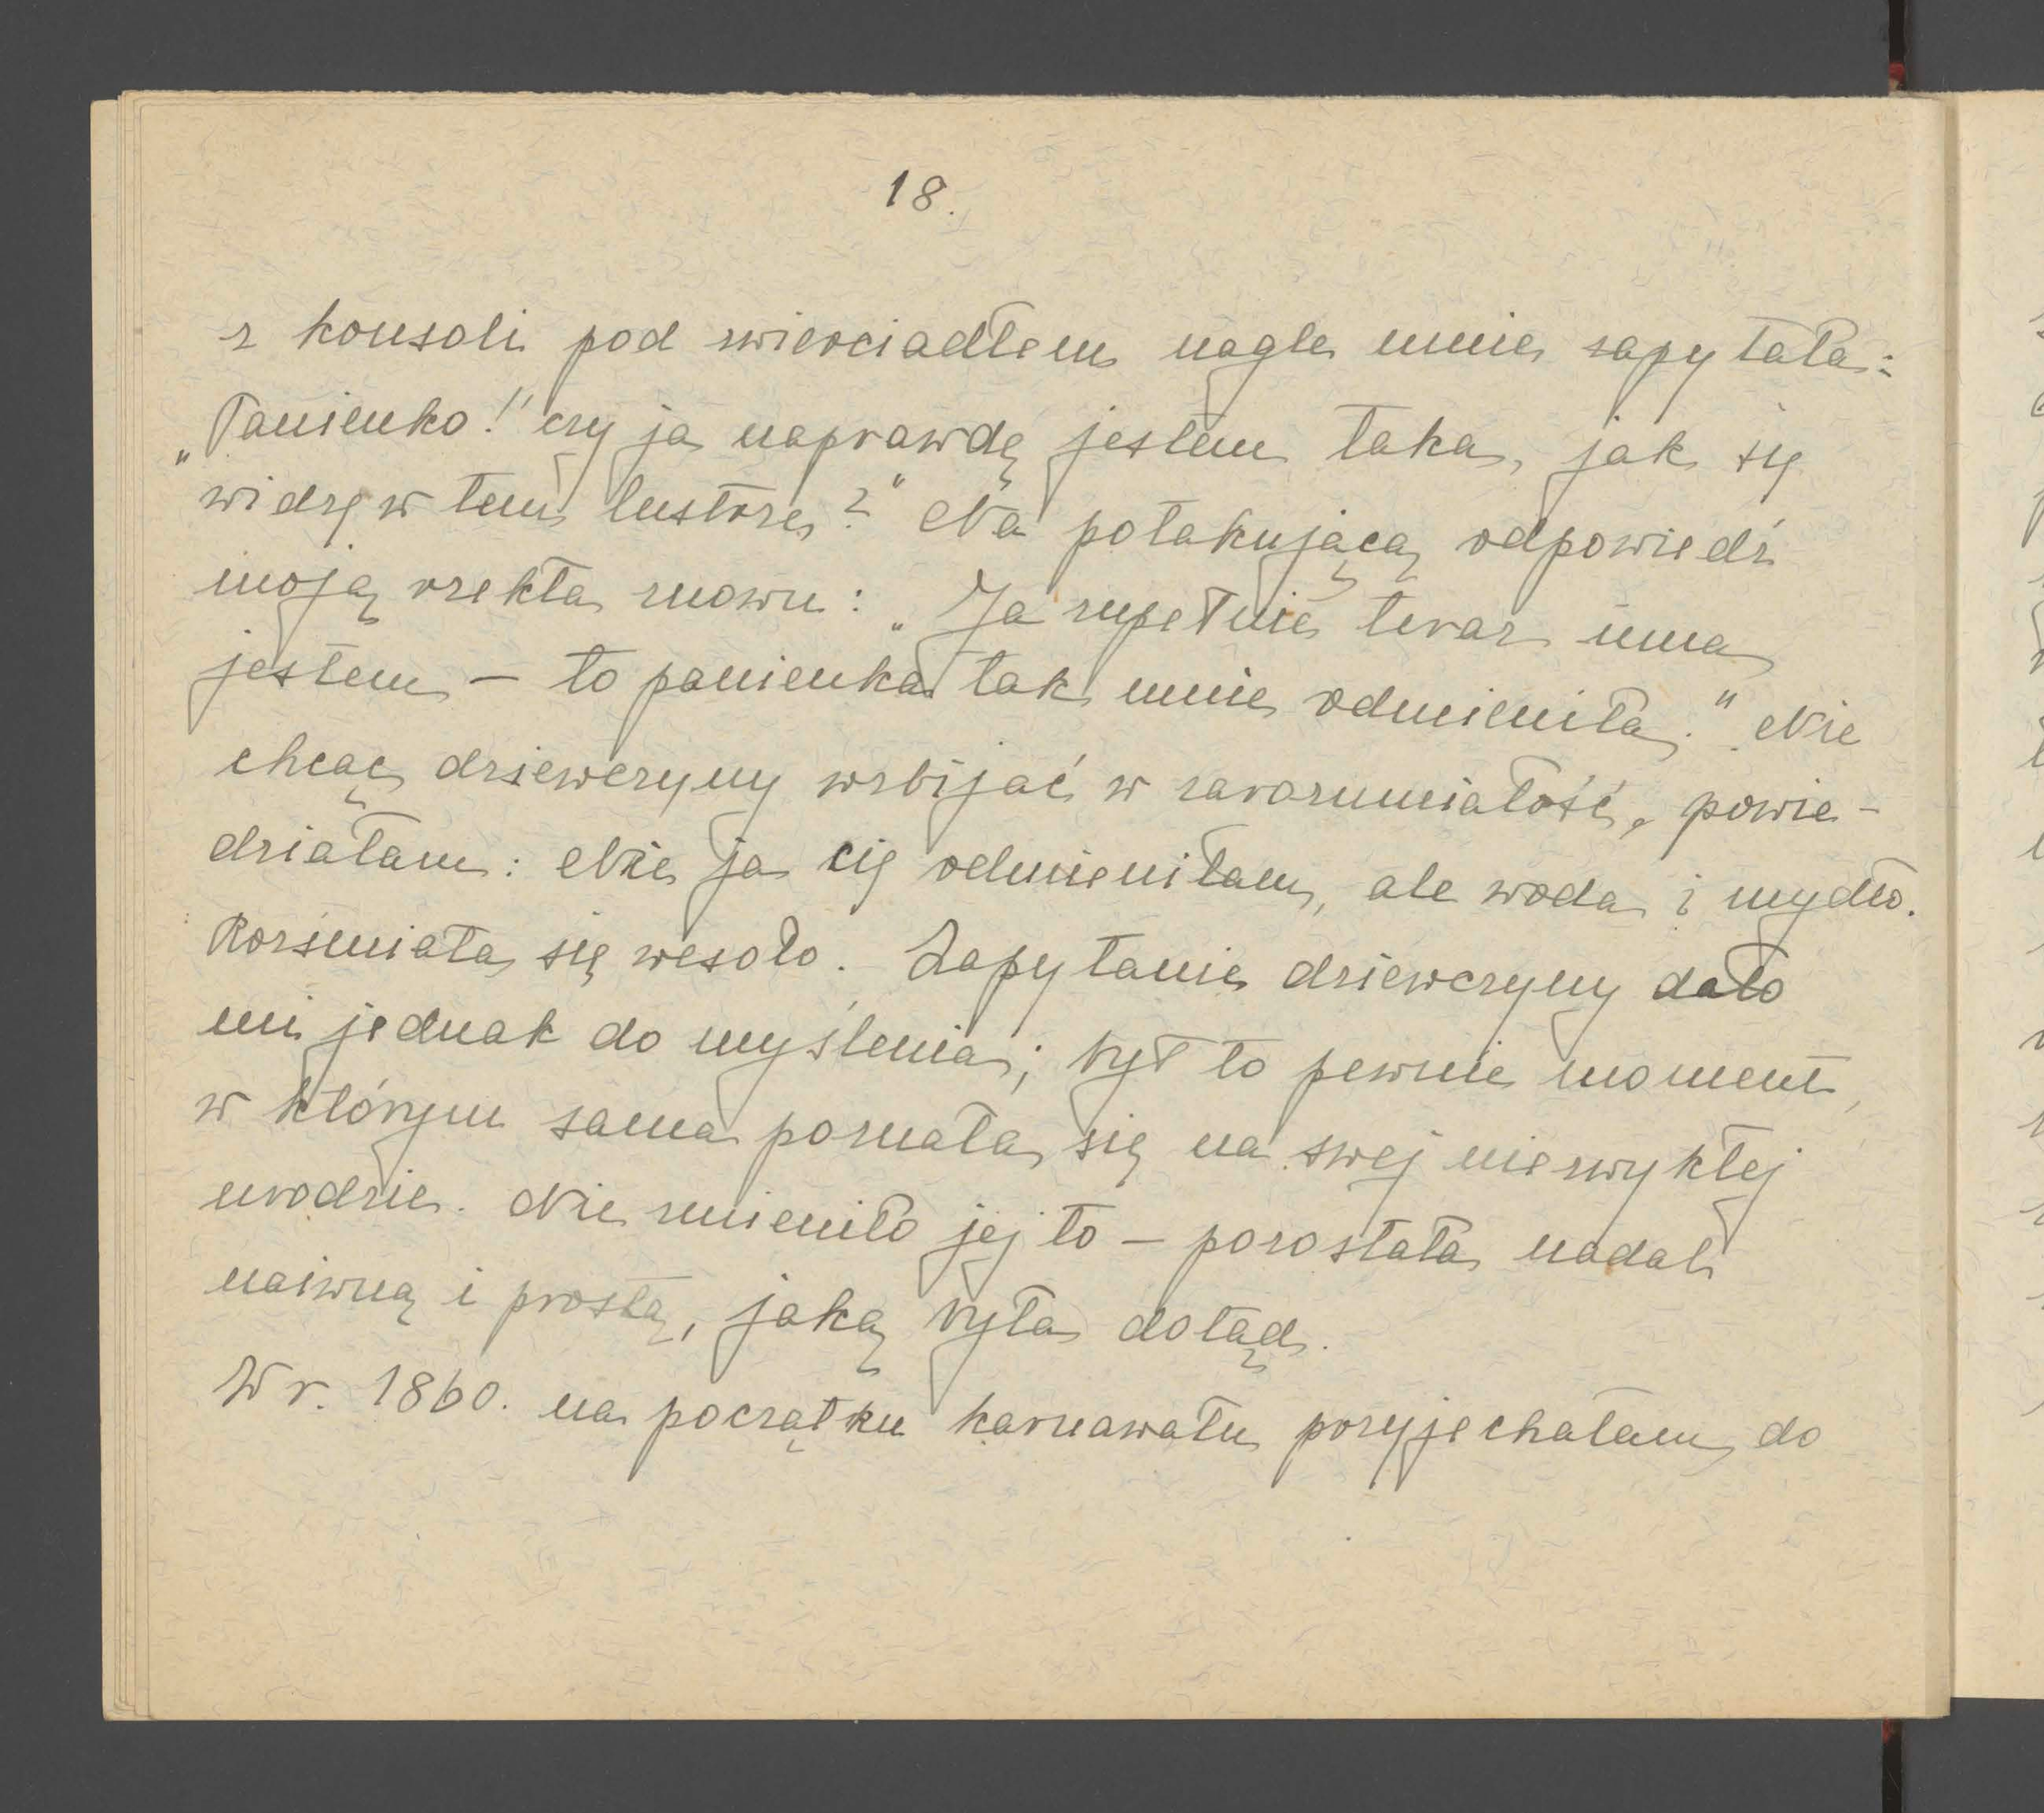 18.
z konsoli pod zwierciadłem nagle mnie zapytała:
„Panienko!" czy ja naprawdę jestem taka, jak się
widzę w tem lustrze?" Na potakującą odpowiedź
moją rzekła znowu: „Ja zupełnie teraz inna
jestem – to panienka tak mnie odmieniła." Nie
chcąc dziewczyny wzbijać w zarozumiałość, powie-
działam: Nie ja cię odmieniłam, ale woda i mydło.
Rozśmiała się wesoło. Zapytanie dziewczyny dało
mi jednak do myślenia; był to pewnie moment,
w którym sama poznała się na swej niezwykłej
urodzie. Nie zmieniło jej to – pozostała nadal
naiwną i prostą, jaką była dotąd.
W r. 1860. na początku karnawału przyjechałam do